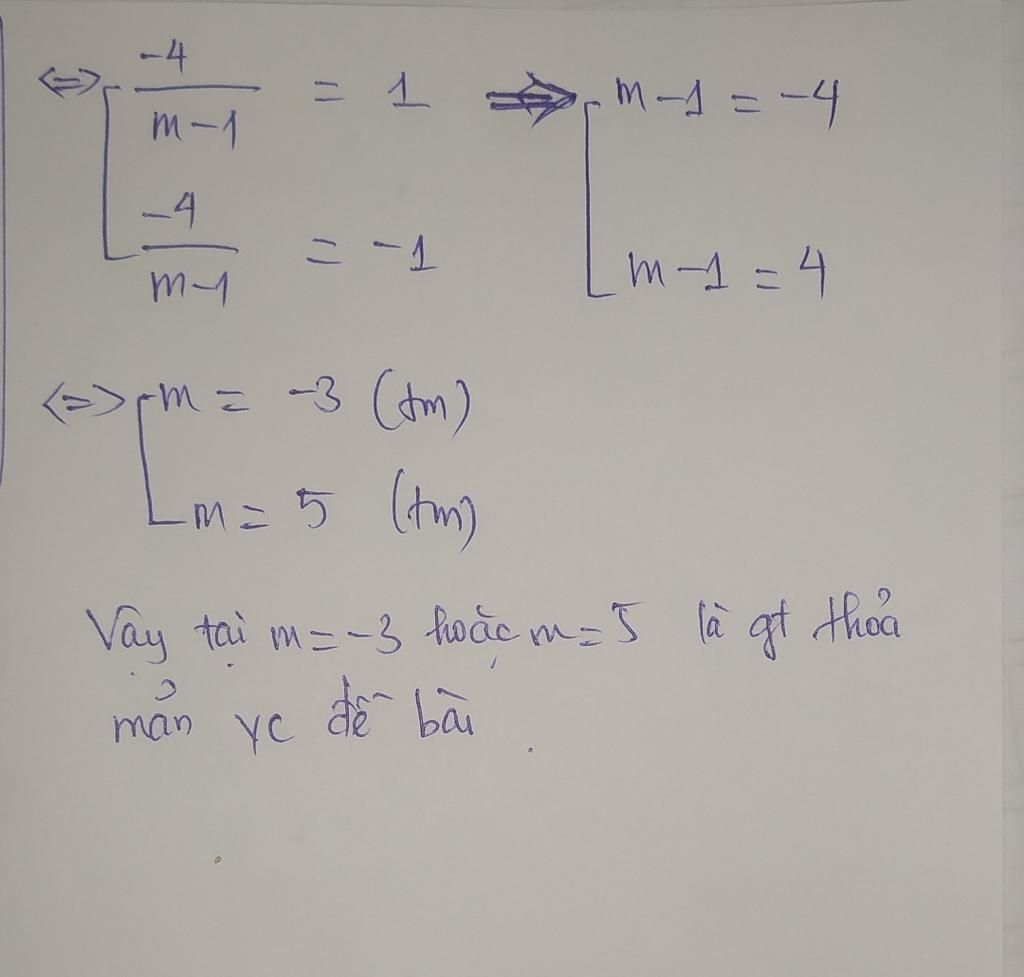 ⇔ [ -4/(m-1) = 1 ⇒ [ m-1 = -4
-4/(m-1) = -1 m-1 = 4
⇔ [ m = -3 (tm)
m = 5 (tm)
Vậy tại m = -3 hoặc m = 5 là gt thoả
mản yc đề bài.